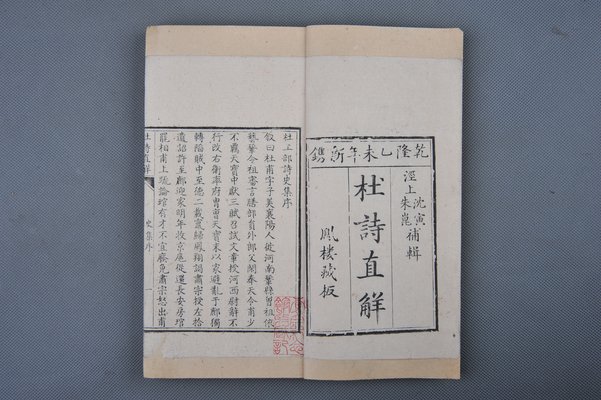 乾隆乙未年新鐫
涇上
沈寅
朱崑
補輯
杜詩直解
鳳樓藏板
杜工部詩史集序
叙曰杜甫字子美襄陽人徙河南鞏縣曾祖依
藝鞏令祖審言膳部員外郎父閑奉天令甫少
不羈天寶中獻三賦召試文章授河西尉辭不
行改右衛率府冑曹天寶末以家避亂于鄜獨
轉陷賊中至德二載竄歸鳳翔謁肅宗授左拾
遺詔許至鄜迎家明年收京扈從還長安房琯
罷相甫上疏論琯有才不宜廢免肅宗怒出甫
杜詩直解
史集序
一